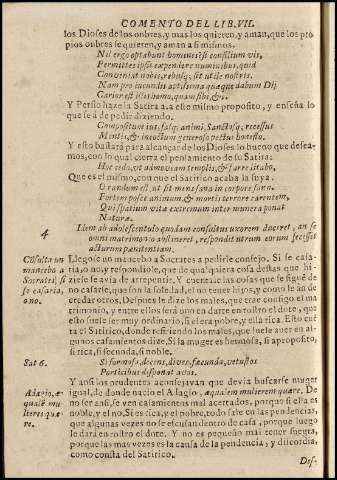 COMENTO DEL LIB. VII.
los Dioses de los onbres, y mas los quieren, y aman, que los pro
pios onbres se quieren, y aman a si mismos.
Nil ergo optabunt homines? si consilium vis,
Permittes ipsis expendere numinibus, quid
Conveniat nobis, rebusq; sit utile nostris.
Nam pro iucundis aptissima quæque dabunt Dij
Carior est illis homo, quam sibi, &c.
Y Persio haze la Satira 2. a este mismo proposito, y enseña lo
que se à de pedir diziendo.
Compositum ius, fasq; animi, sanctosq; recessus
Mentis, & incoctum generoso pectus honesto.
Y esto bastarà para alcançar de los Dioses lo bueno que desea-
mos, con lo qual cierra el pensamiento de su Satira:
Hoc cedo, ut admoveam templis, & farre litabo,
Que es el mismo, con que el Satirico acaba la suya.
Orandum est, ut sit mens sana in corpore sano.
Fortem posce animum, & mortis terrore carentem,
Qui spatium vitæ extremum inter munera ponat
Naturæ.
4
Idem ab adolescentulo quodam consultus uxorem duceret, an se
omni matrimonio abstineret, respondit utrum eorum fecisset
acturum pœnitentiam.
Consulta un
mancebo a
Socrates, si
se casaria,
o no.
Llegose un mancebo a Socrates a pedirle consejo. Si se casa-
ria, o no, y respondiole, que de qualquiera cosa destas que hi-
ziese le avia de arrepentir. Y cuentale las cosas que se sigue de
no casarse, que son la soledad, el no tener hijos, y como le án de
eredar otros. Despues le dize los males, que trae consigo el ma
trimonio, y entre ellos serà uno en darte en rostro el dote, que
esto suele ser muy ordinario, si el era pobre, y ella rica. Esto cuẽ
ta el Satirico, donde refiriendo los males, que suele aver en al-
gunos casamientos dize. Si la muger es hermosa, si a proposito,
si rica, si fecunda, si noble.
Sat 6.
Si formosa, decens, dives, fæcunda, vetustos
Porticibus disponat avos.
Adagio, æ-
qualẽ mu-
lierẽ quæ-
re.
Y ansi los prudentes aconsejavan que devia buscarse muger
igual, de donde nacio el Adagio, æqualem mulierem quære. De
no ser ansi, se ven calamientos mal acertados, porque si ella es
noble, y el no. Si es rica, y el pobre, todo sale en las pendencias,
que algunas vezes no se escusan dentro de casa, porque luego
le darà en rostro el dote. Y no es pequeño mal tener suegra,
porque las mas vezes es la causa de la pendencia, y discordia,
como consta del Satirico.
Des-